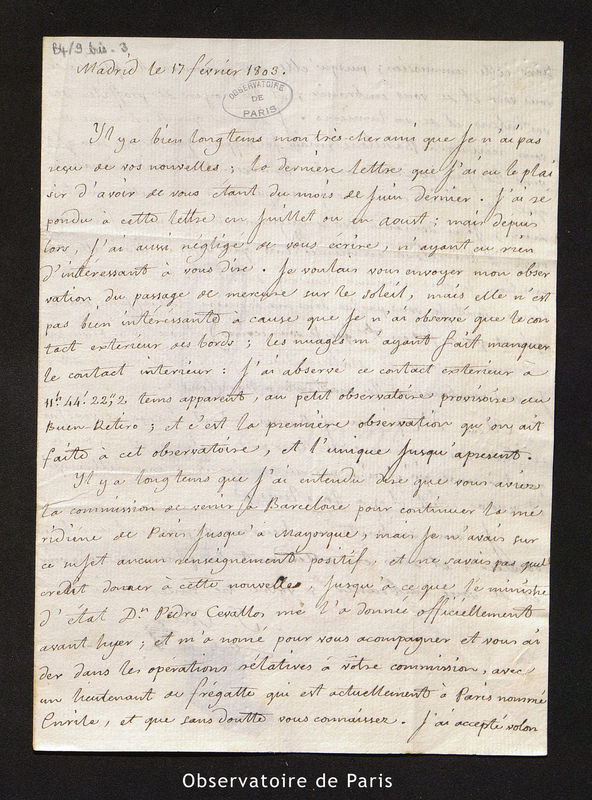 B4/9 bis. 3
Madrid le 17 février 1803.
OBSERVATOIRE
DE
PARIS
Il y a bien longtems mon très cher ami que je n'ai pas
reçu de vos nouvelles ; la dernière lettre que j'ai eu le plai
sir d'avoir de vous étant du mois de Juin dernier. J'ai ré
pondu à cette lettre en Juillet ou en aoust ; mais depuis
lors, j'ai aussi négligé de vous écrire, n'ayant eu rien
d'intéressant à vous dire. Je voulais vous envoyer mon obser
vation du passage de mercure sur le soleil, mais elle n'est
pas bien intéressante à cause que je n'ai observé que le con
tact exterieur des bords ; les nuages m'ayant fait manquer
le contact interieur : j'ai observé ce contact exterieur a
11h. 44'. 22",2 tems apparent, au petit observatoire provisoire du
Buen-Retiro ; et c'est la première observation qu'on ait
faite à cet observatoire, et l'unique jusqu'apresent.
Il y a longtems que j'ai entendu dire que vous aviez
la commission de venir à Barcelone pour continuer la mé
ridiène de Paris jusqu'a Mayorque ; mais je n'avais sur
ce sujet aucun renseignement positif, et ne savais pas quel
crédit donner à cette nouvelle, jusqu'à ce que le ministre
d'état Dn Pedro Cevallos me l'a donnée officiellement
avant-hyer ; et m'a nomé pour vous acompagner et vous ai
der dans les operations rélatives à votre commission, avec
un lieutenant de frégatte qui est actuellement à Paris nommé
Enrile, et que sans doutte vous connaissez. J'ai accepté volon
Observatoire de Paris